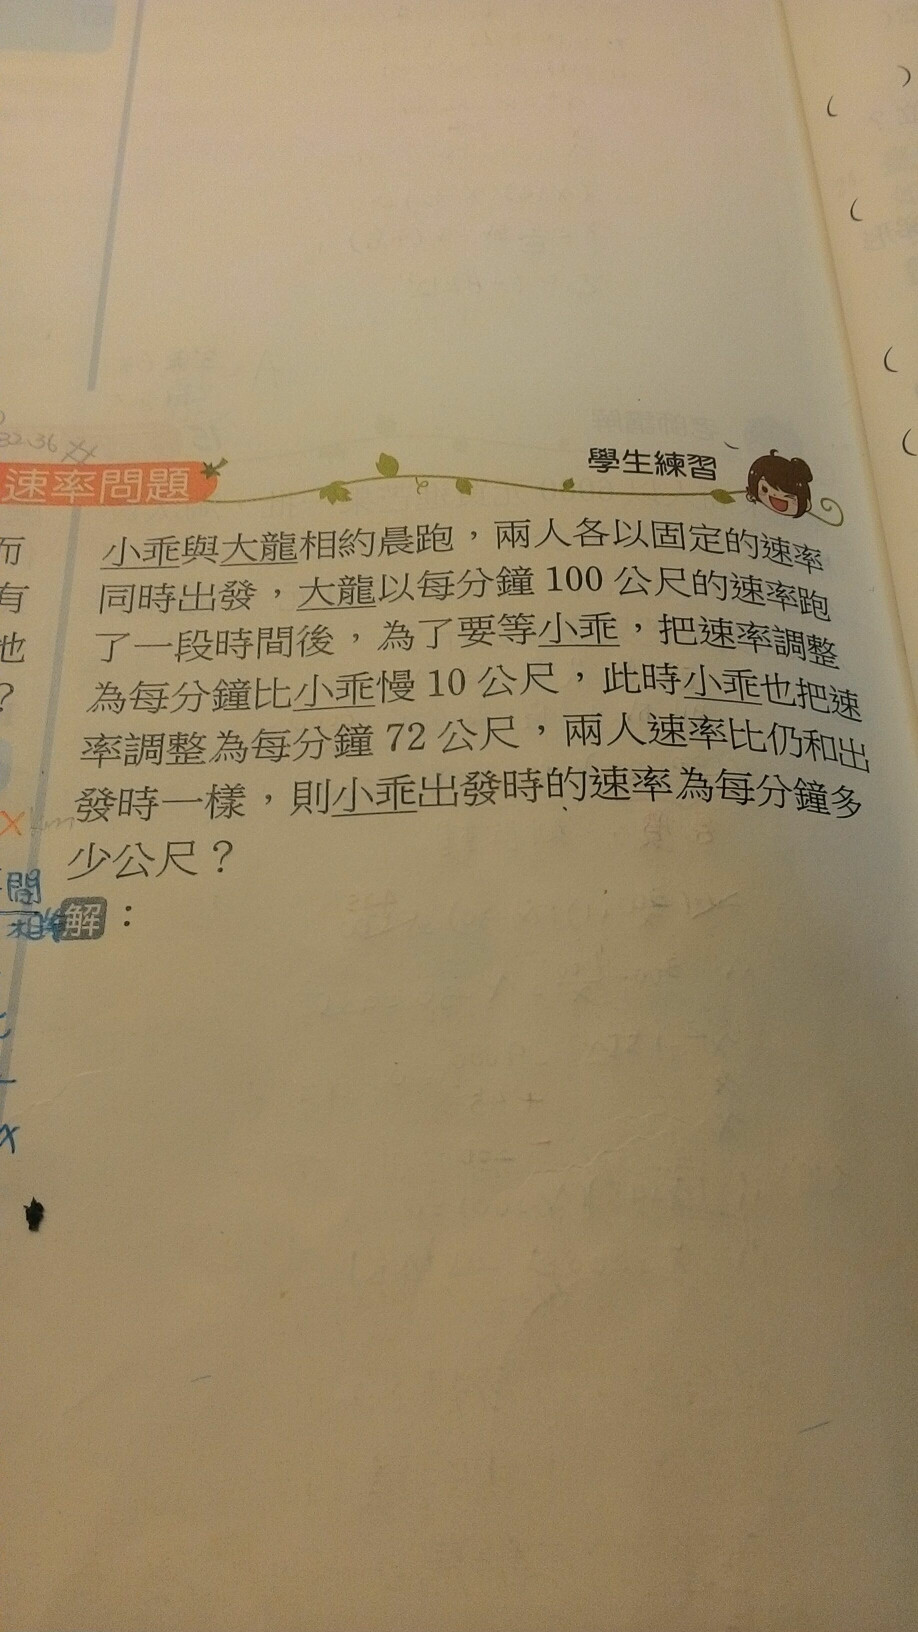 32.36
速率問題
學生練習
小乖與大龍相約晨跑，兩人各以固定的速率
同時出發，大龍以每分鐘 100 公尺的速率跑
了一段時間後，為了要等小乖，把速率調整
為每分鐘比小乖慢 10 公尺，此時小乖也把速
率調整為每分鐘 72 公尺，兩人速率比仍和出
發時一樣，則小乖出發時的速率為每分鐘多
少公尺？
解：
而
有
地
？
x
間
相
x